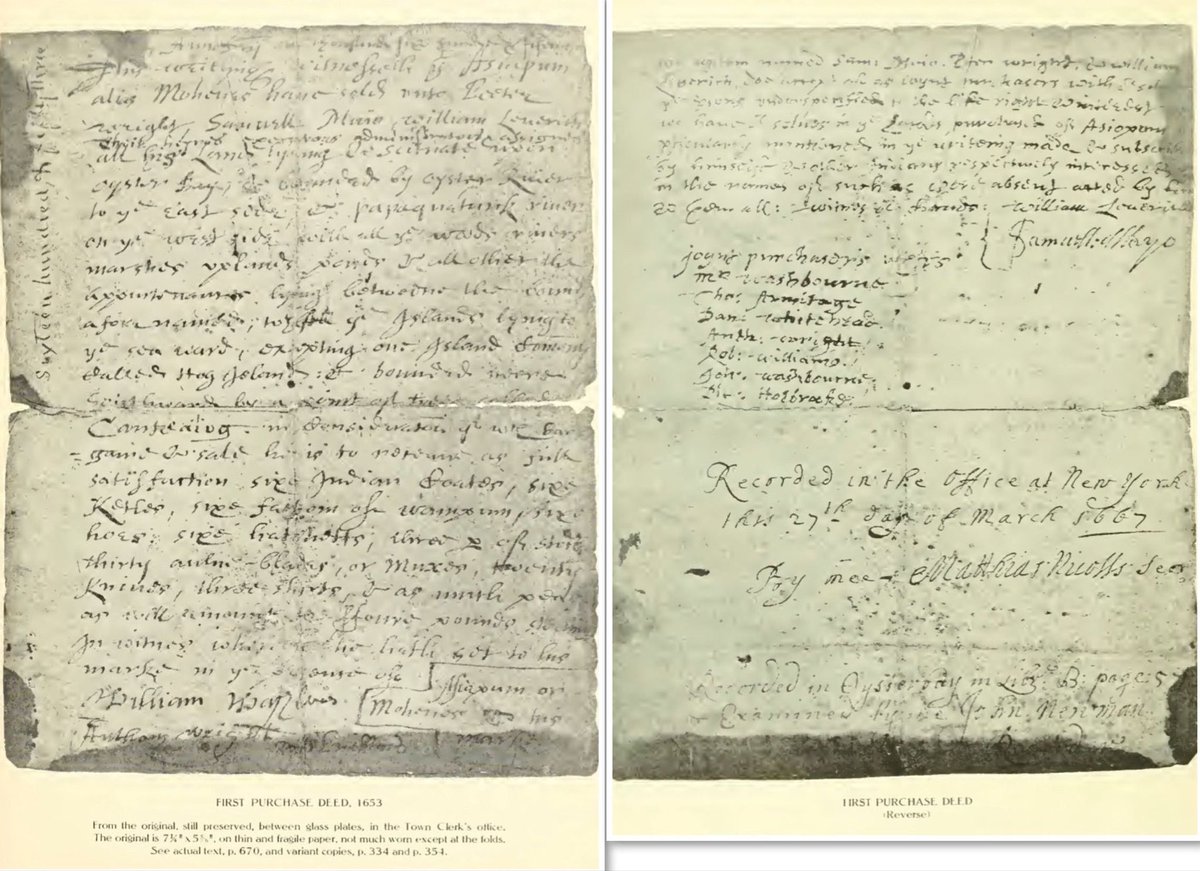 Sixteen hundred & fifty three
This writing witnesseth yt Assiapum
alis Moheness have sold unto Peeter
wright, Samuell Maio, William Leverich
their heyres Executors administrators & assignes
all his Land lying & scituate upon
oyster bay, & bounded by oyster River
to ye East side, & papaquatunk river
on ye west side, with all ye woods rivers
marshes uplands ponds & all other the
appertenances lying betweene the bounds
afore named, with ye Islands lying to
ye sea ward, excepting one Island comonly
called Hog Island, & bounded neere
Southward by a
Cantiaiog in consideration
game & sale he is to receive as full
satisfaction sixe Indian Coates, sixe
Ketles, sixe fathom of wampum, sixe
hoes, sixe hatchetts, three pr of stockings
thirty aulne-blades, or muxes, twenty
Knives, three shirts, & as much peage
as will amount to foure pounds sterling
In witnes whereof he hath set to his
marke in ye presence of
William Washborne
Anthony wright
Assiapum or
Moheness his
marke
FIRST PURCHASE DEED, 1653
From the original, still preserved, between glass plates, in the Town Clerk's office.
The original is 7¾" x 5⅝", on thin and fragile paper, not much worn except at the folds.
See actual text, p. 670, and variant copies, p. 334 and p. 354.
named Sam: Maio, Peter wright, & William
Leverich, doe accept of as Joynt
ye persons underspecified to the like right & interest
we have or selves in ye Lands purchased of Asiapum
pticularly mentioned in ye writeing made & subscribed
by himselfe & other Indians respectively interessed
in the names of such as were absent acted by him
& them all: witnes or hands: William Leverich
Samuel Mayo
joynt purchasers
Mr Washbourne
Tho: Armitage
Dan: whitehead
Anth: wright
Rob: williams
Joh: washbourne
Ric: Holbrooke
Recorded in the Office at New Yorke
this 27th day of March 1667
By mee Matthias Nicolls Secr
Recorded in Oysterbay in Libr B: page
Examined John Newman
FIRST PURCHASE DEED
(Reverse)